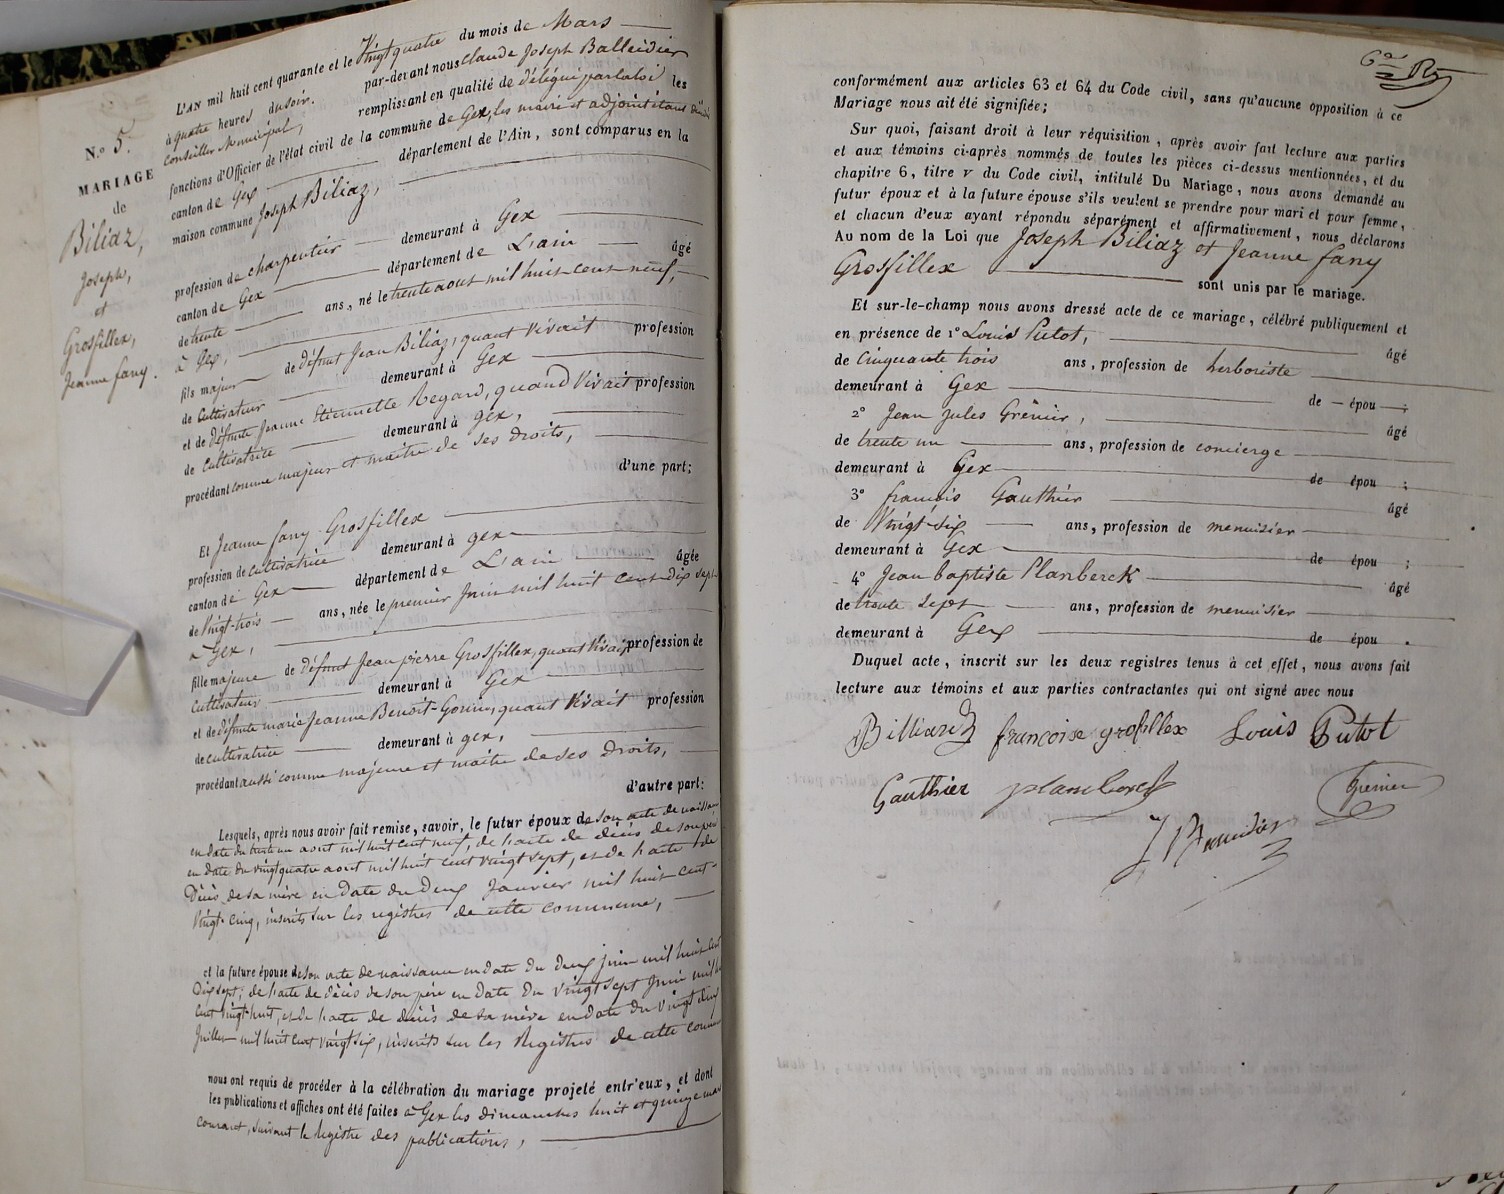 N.º 5.
MARIAGE
de
Biliaz,
Joseph,
et
Grosfillex,
Jeanne fany.
L'AN mil huit cent quarante et le Vingt quatre du mois de Mars
à quatre heures du soir. par-devant nous Claude Joseph Balleidier
Conseiller Municipal, remplissant en qualité de délégué par la loi les
fonctions d'Officier de l'état civil de la commune de Gex, les maire et adjoint étant
canton de Gex département de l'Ain, sont comparus en la
maison commune Joseph Biliaz,
profession de charpentier demeurant à Gex
canton de Gex département de L'ain âgé
de trente ans, né le trente aout mil huit cent neuf,
à Gex,
fils majeur de défunt Jean Biliaz, quant Vivait profession
de Cultivateur demeurant à Gex
et de défunte Jeanne Etiennette Regard, quand Vivait profession
de Cultivatrice demeurant à gex,
procédant comme majeur et maitre de ses droits,
d'une part;
Et Jeanne fany Grosfillex
profession de cultivatrice demeurant à gex
canton de Gex département de L'ain âgée
de Vingt-trois ans, née le premier Juin mil huit cent dix sept
à Gex,
fille majeure de défunt Jean pierre Grosfillex, quant Vivait profession de
Cultivateur demeurant à Gex
et de défunte marie Jeanne Benoit-Gonin, quant Vivait profession
de cultivatrice demeurant à gex,
procédant aussi comme majeure et maitre de ses droits,
d'autre part:
Lesquels, après nous avoir fait remise, savoir, le futur époux de son acte de naissance
en date du trente un aout mil huit cent neuf, de l'acte de décès de son père
en date du vingt quatre aout mil huit cent vingt sept, et de l'acte de
Décès de sa mère en date du Deux Janvier mil huit cent
Vingt-Cinq, inscrits sur les registres de cette commune,
et la future épouse de son acte de naissance en date du deux juin mil huit cent
Dix sept; de l'acte de décès de son père en date du vingt sept Juin mil huit
cent vingt-huit, et de l'acte de décès de sa mère en date du vingt deux
Juillet mil huit cent vingt six, inscrits sur les Registres de cette commune
nous ont requis de procéder à la célébration du mariage projeté entr'eux, et dont
les publications et affiches ont été faites à Gex les dimanches huit et quinze mars
courant, suivant le Registre des publications,
conformément aux articles 63 et 64 du Code civil, sans qu'aucune opposition à ce
Mariage nous ait été signifiée;
Sur quoi, faisant droit à leur réquisition, après avoir fait lecture aux parties
et aux témoins ci-après nommés de toutes les pièces ci-dessus mentionnées, et du
chapitre 6, titre v du Code civil, intitulé Du Mariage, nous avons demandé au
futur époux et à la future épouse s'ils veulent se prendre pour mari et pour femme,
et chacun d'eux ayant répondu séparément et affirmativement, nous déclarons
Au nom de la Loi que Joseph Biliaz et Jeanne fany
Grosfillex sont unis par le mariage.
Et sur-le-champ nous avons dressé acte de ce mariage, célébré publiquement et
en présence de 1º Louis Putot, âgé
de Cinquante trois ans, profession de herboriste
demeurant à Gex de épou ;
2º Jean Jules Grénier, âgé
de trente un ans, profession de concierge
demeurant à Gex de épou ;
3º francois Gauthier âgé
de Vingt-six ans, profession de menuisier
demeurant à Gex de épou ;
4º Jean baptiste Planberck âgé
de trente sept ans, profession de menuisier
demeurant à Gex de épou .
Duquel acte, inscrit sur les deux registres tenus à cet effet, nous avons fait
lecture aux témoins et aux parties contractantes qui ont signé avec nous
francoise grosfillex Louis Putot
Gauthier Grenier